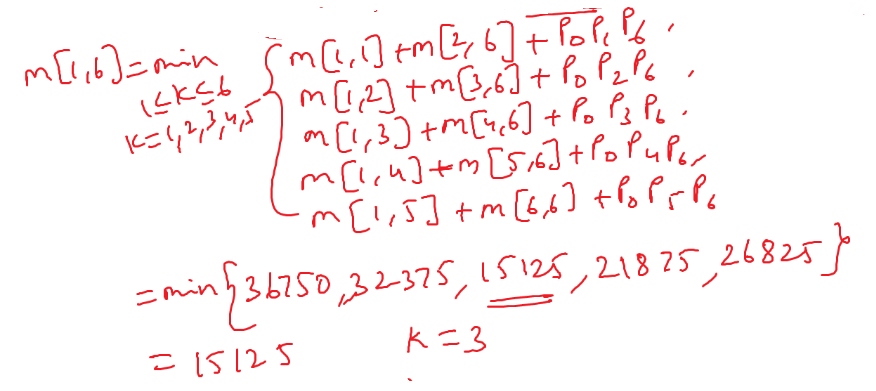 m[1,6] = min { m[1,1] + m[2,6] + P₀P₁P₆,
1≤K≤6 m[1,2] + m[3,6] + P₀P₂P₆,
K=1,2,3,4,5 m[1,3] + m[4,6] + P₀P₃P₆.
m[1,4] + m[5,6] + P₀P₄P₆,
m[1,5] + m[6,6] + P₀P₅P₆
= min {36750, 32375, 15125, 21875, 26825}
= 15125 K=3